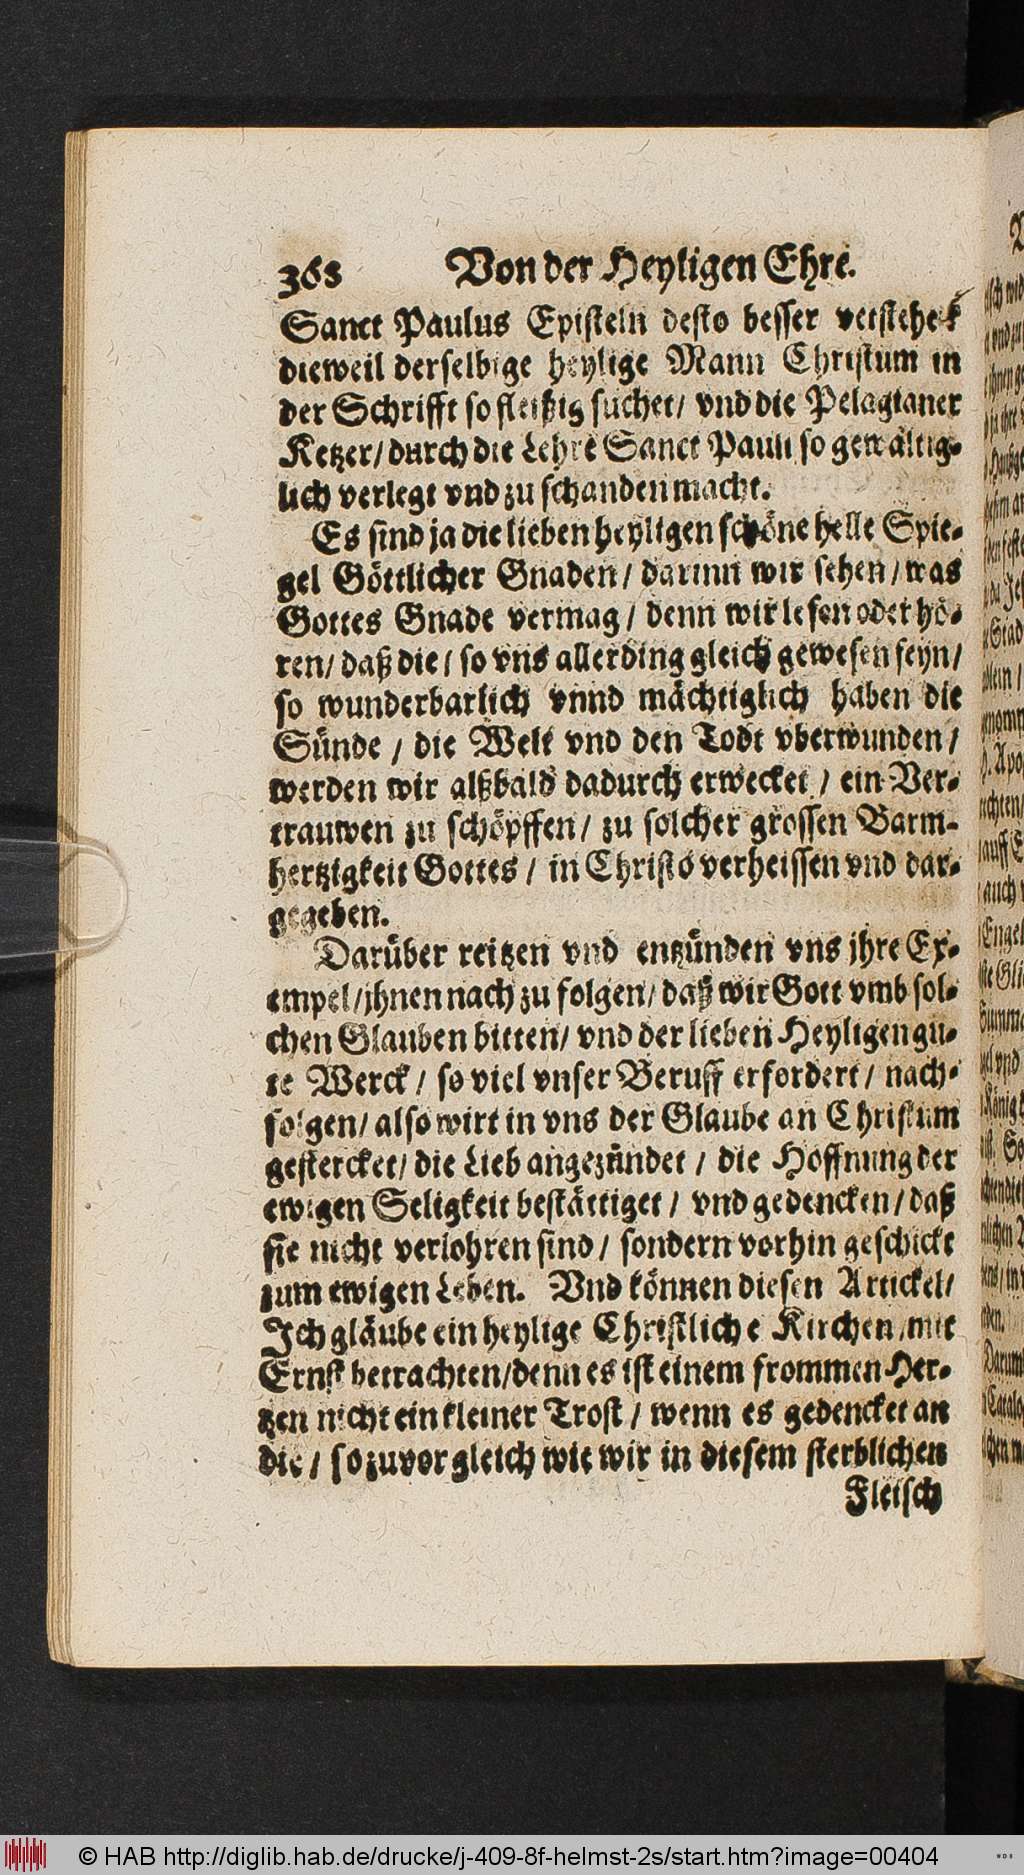 368 Von der Heyligen Ehre.
Sanct Paulus Episteln desto besser verstehet
dieweil derselbige heylige Mann Christum in
der Schrifft so fleißig suchet/ vnd die Pelagianer
Ketzer/ durch die Lehre Sanct Pauli so gewaltig-
lich verlegt vnd zu schanden macht.
Es sind ja die lieben heyligen schöne helle Spie-
gel Göttlicher Gnaden/ darinn wir sehen/ was
Gottes Gnade vermag/ denn wir lesen oder hö-
ren/ daß die/ so vns allerding gleich gewesen seyn/
so wunderbarlich vnnd mächtiglich haben die
Sünde/ die Welt vnd den Todt vberwunden/
werden wir alßbald dadurch erwecket/ ein Ver-
trauwen zu schöpffen/ zu solcher grossen Barm-
hertzigkeit Gottes/ in Christo verheissen vnd dar-
gegeben.
Darüber reitzen vnd entzünden vns jhre Ex-
empel/ jhnen nach zu folgen/ daß wir Gott vmb sol-
chen Glauben bitten/ vnd der lieben Heyligen gu-
te Werck/ so viel vnser Beruff erfordert/ nach-
folgen/ also wirt in vns der Glaube an Christum
gestercket/ die Lieb angezündet/ die Hoffnung der
ewigen Seligkeit bestättiget/ vnd gedencken/ daß
sie nicht verlohren sind/ sondern vorhin geschickt
zum ewigen Leben. Vnd können diesen Artickel/
Ich gläube ein heylige Christliche Kirchen/ mit
Ernst betrachten/ denn es ist einem frommen Her-
tzen nicht ein kleiner Trost/ wenn es gedencket an
die/ so zuvor gleich wie wir in diesem sterblichen
Fleisch
© HAB http://diglib.hab.de/drucke/j-409-8f-helmst-2s/start.htm?image=00404